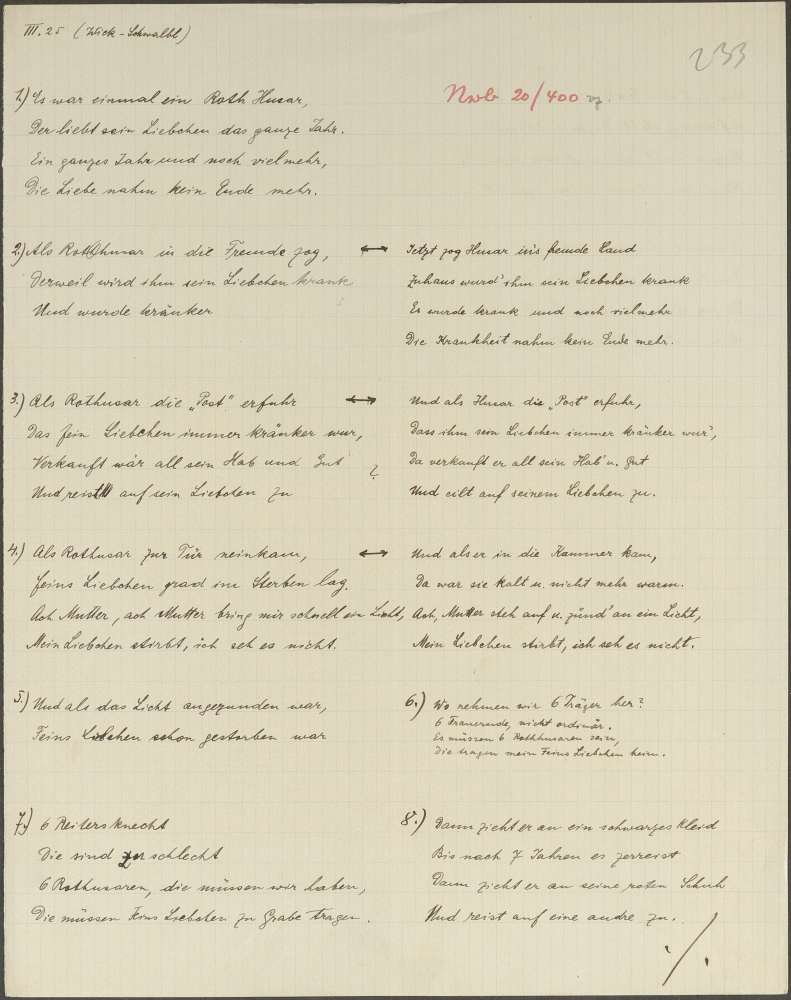 III. 25 (Wick - Schwalbl)
233
Nwb 20/400
1.) Es war einmal ein Roth Husar,
Der liebt sein Liebchen das ganze Jahr.
Ein ganzes Jahr und noch viel mehr,
Die Liebe nahm kein Ende mehr.
2.) Als Rothhusar in die Fremde zog,
Derweil wird ihm sein Liebchen krank
Und wurde kränker
Jetzt zog Husar in's fremde Land
Zuhaus wurd' ihm sein Liebchen krank
Es wurde krank und noch vielmehr
Die Krankheit nahm kein Ende mehr.
3.) Als Rothusar die „Post" erfuhr
Das fein Liebchen immer kränker wur,
Verkauft wär all sein Hab und Gut ?
Und reist auf sein Liebchen zu
Und als Husar die „Post" erfuhr,
Dass ihm sein Liebchen immer kränker wur',
Da verkauft er all sein Hab' u. Gut
Und eilt auf seinem Liebchen zu.
4.) Als Rothusar zur Tür neinkam,
Feins Liebchen grad im Sterben lag.
Ach Mutter, ach Mutter bring mir schnell ein Licht,
Mein Liebchen stirbt, ich seh es nicht.
Und als er in die Kammer kam,
Da war sie kalt u. nicht mehr warm.
Ach, Mutter steh auf u. zünd' an ein Licht,
Mein Liebchen stirbt, ich seh es nicht.
5.) Und als das Licht angezunden war,
Feins Liebchen schon gestorben war
6.) Wo nehmen wir 6 Träger her?
6 Trauernde, nicht ordinär.
Es müssen 6 Rothhusaren sein,
Die tragen mein Feins Liebchen heim.
7.) 6 Reitersknecht
Die sind zu schlecht
6 Rothusaren, die müssen wir haben,
Die müssen Feins Liebchen zu Grabe tragen.
8.) Dann zieht er an ein schwarzes Kleid
Bis nach 7 Jahren es zerreist
Dann zieht er an seine roten Schuh
Und reist auf eine andre zu.
./.